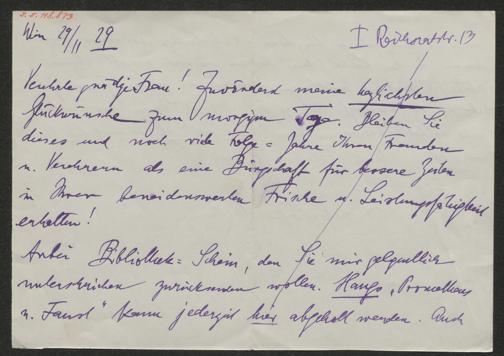 Wien 29/11 29
I Reichsratstr. 13
Verehrte gnädige Frau! Zuvörderst meine herzlichsten
Glückwünsche zum morgigen Tage. Bleiben Sie
dieses und noch viele Folge = Jahre Ihren Freunden
u. Verehrern als eine Bürgschaft für bessere Zeiten
in Ihrer beneidenswerten Frische u. Leistungsfähigkeit
erhalten!
Anbei Bibliothek = Schein, den Sie mir gelegentlich
unterschrieben zurücksenden wollen. "Prometheus
u. Faust" kann jederzeit hier abgeholt werden. Auch